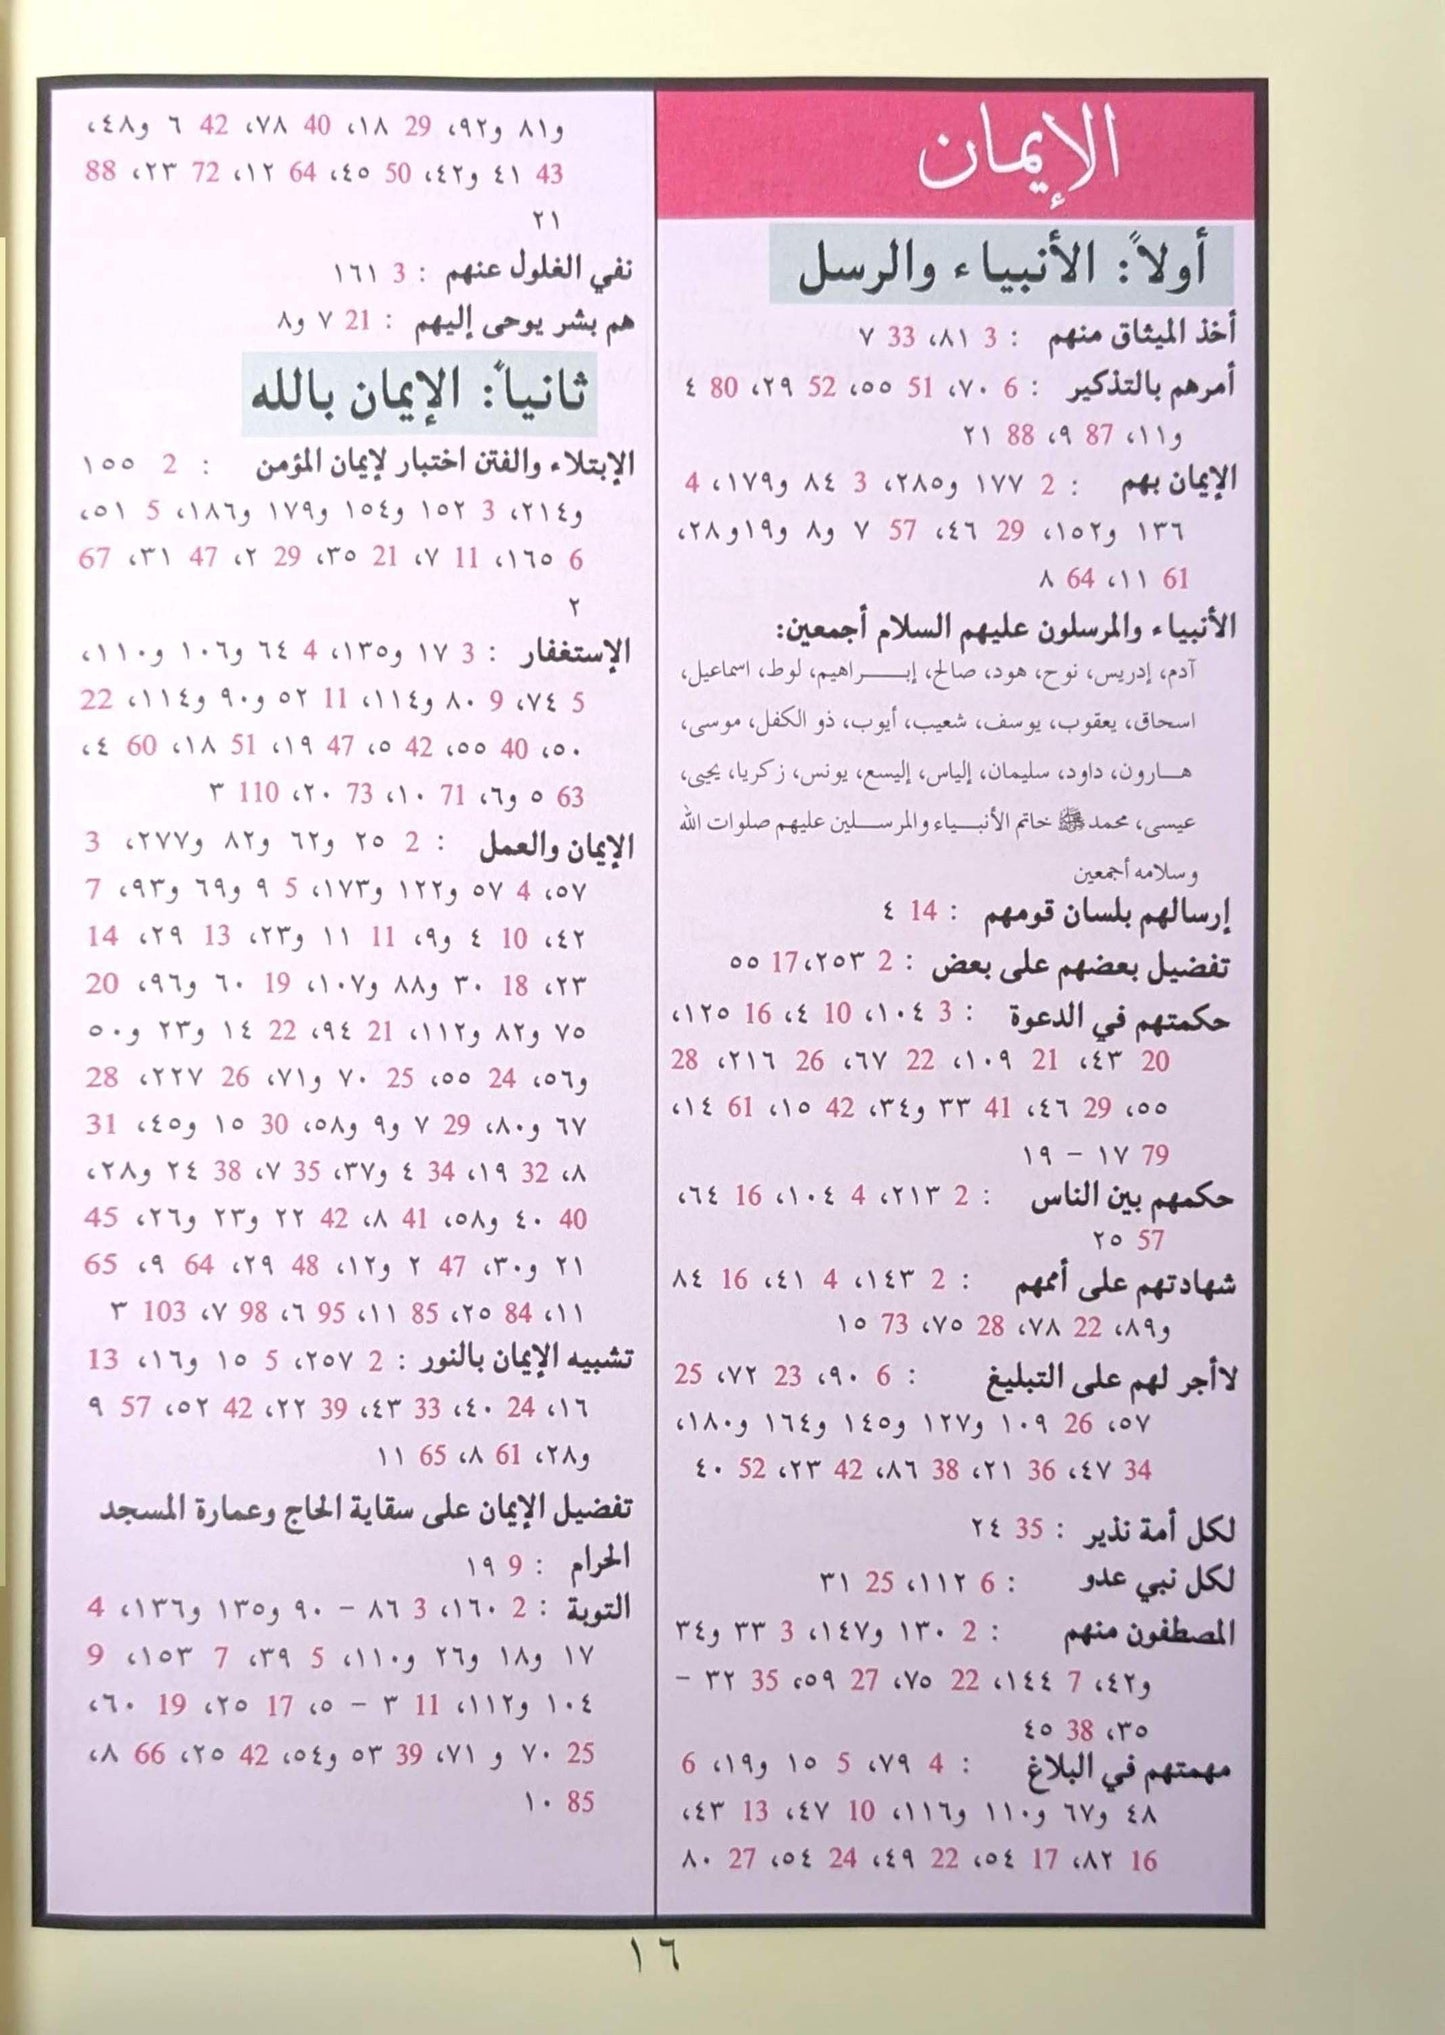 الإيمان
أولاً: الأنبياء والرسل
أخذ الميثاق منهم : 3 ٨١، 33 ٧
أمرهم بالتذكير : 6 ٧٠، 51 ٥٥، 52 ٢٩، 80 ٤
و١١، 87 ٩، 88 ٢١
الإيمان بهم : 2 ١٧٧ و٢٨٥، 3 ٨٤ و١٧٩، 4
١٣٦ و١٥٢، 29 ٤٦، 57 ٧ و٨ و١٩و٢٨،
61 ١١، 64 ٨
الأنبياء والمرسلون عليهم السلام أجمعين:
آدم، إدريس، نوح، هود، صالح، إبــراهيم، لوط، اسماعيل،
اسحاق، يعقوب، يوسف، شعيب، أيوب، ذو الكفل، موسى،
هــارون، داود، سليمان، إلياس، إليسع، يونس، زكريا، يحيى،
عيسى، محمد ﷺ خاتم الأنبــياء والمرسـلين عليهم صلوات الله
وسلامه أجمعين
إرسالهم بلسان قومهم : 14 ٤
تفضيل بعضهم على بعض : 2 ٢٥٣، 17 ٥٥
حكمتهم في الدعوة : 3 ١٠٤، 10 ٤، 16 ١٢٥،
20 ٤٣، 21 ١٠٩، 22 ٦٧، 26 ٢١٦، 28
٥٥، 29 ٤٦، 41 ٣٣ و٣٤، 42 ١٥، 61 ١٤،
79 ١٧ – ١٩
حكمهم بين الناس : 2 ٢١٣، 4 ١٠٤، 16 ٦٤،
57 ٢٥
شهادتهم على أممهم : 2 ١٤٣، 4 ٤١، 16 ٨٤
و٨٩، 22 ٧٨، 28 ٧٥، 73 ١٥
لاأجر لهم على التبليغ : 6 ٩٠، 23 ٧٢، 25
٥٧، 26 ١٠٩ و١٢٧ و١٤٥ و١٦٤ و١٨٠،
34 ٤٧، 36 ٢١، 38 ٨٦، 42 ٢٣، 52 ٤٠
لكل أمة نذير : 35 ٢٤
لكل نبي عدو : 6 ١١٢، 25 ٣١
المصطفون منهم : 2 ١٣٠ و١٤٧، 3 ٣٣ و٣٤
و٤٢، 7 ١٤٤، 22 ٧٥، 27 ٥٩، 35 ٣٢ –
٣٥، 38 ٤٥
مهمتهم في البلاغ : 4 ٧٩، 5 ١٥ و١٩، 6
٤٨ و٦٧ و١١٠ و١١٦، 10 ٤٧، 13 ٤٣،
16 ٨٢، 17 ٥٤، 22 ٤٩، 24 ٥٤، 27 ٨٠
و٨١ و٩٢، 29 ١٨، 40 ٧٨، 42 ٦ و٤٨،
43 ٤١ و٤٢، 50 ٤٥، 64 ١٢، 72 ٢٣، 88
٢١
نفي الغلول عنهم : 3 ١٦١
هم بشر يوحى إليهم : 21 ٧ و٨
ثانياً: الإيمان بالله
الإبتلاء والفتن اختبار لإيمان المؤمن : 2 ١٥٥
و٢١٤، 3 ١٥٢ و١٥٤ و١٧٩ و١٨٦، 5 ٥١،
6 ١٦٥، 11 ٧، 21 ٣٥، 29 ٢، 47 ٣١، 67
٢
الإستغفار : 3 ١٧ و١٣٥، 4 ٦٤ و١٠٦ و١١٠،
5 ٧٤، 9 ٨٠ و١١٤، 11 ٥٢ و٩٠ و١١٤، 22
٥٠، 40 ٥٥، 42 ٥، 47 ١٩، 51 ١٨، 60 ٤،
63 ٥ و٦، 71 ١٠، 73 ٢٠، 110 ٣
الإيمان والعمل : 2 ٢٥ و٦٢ و٨٢ و٢٧٧، 3
٥٧، 4 ٥٧ و١٢٢ و١٧٣، 5 ٩ و٦٩ و٩٣، 7
٤٢، 10 ٤ و٩، 11 ١١ و٢٣، 13 ٢٩، 14
٢٣، 18 ٣٠ و٨٨ و١٠٧، 19 ٦٠ و٩٦، 20
٧٥ و٨٢ و١١٢، 21 ٩٤، 22 ١٤ و٢٣ و٥٠
و٥٦، 24 ٥٥، 25 ٧٠ و٧١، 26 ٢٢٧، 28
٦٧ و٨٠، 29 ٧ و٩ و٥٨، 30 ١٥ و٤٥، 31
٨، 32 ١٩، 34 ٤ و٣٧، 35 ٧، 38 ٢٤ و٢٨،
40 ٤٠ و٥٨، 41 ٨، 42 ٢٢ و٢٣ و٢٦، 45
٢١ و٣٠، 47 ٢ و١٢، 48 ٢٩، 64 ٩، 65
١١، 84 ٢٥، 85 ١١، 95 ٦، 98 ٧، 103 ٣
تشبيه الإيمان بالنور : 2 ٢٥٧، 5 ١٥ و١٦، 13
١٦، 24 ٤٠، 33 ٤٣، 39 ٢٢، 42 ٥٢، 57 ٩
و٢٨، 61 ٨، 65 ١١
تفضيل الإيمان على سقاية الحاج وعمارة المسجد
الحرام : 9 ١٩
التوبة : 2 ١٦٠، 3 ٨٦ – ٩٠ و١٣٥ و١٣٦، 4
١٧ و١٨ و٢٦ و١١٠، 5 ٣٩، 7 ١٥٣، 9
١٠٤ و١١٢، 11 ٣ – ٥، 17 ٢٥، 19 ٦٠،
25 ٧٠ و ٧١، 39 ٥٣ و٥٤، 42 ٢٥، 66 ٨،
85 ١٠
١٦